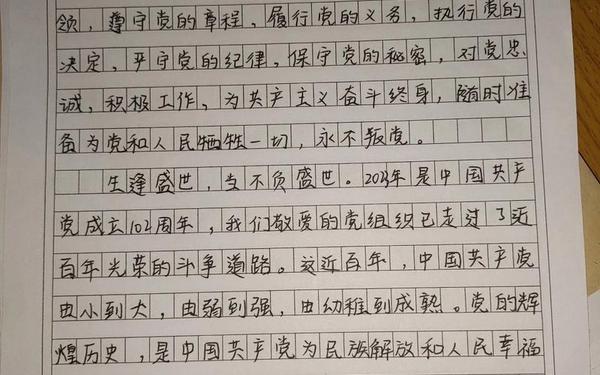 领，遵守党的章程，履行党的义务，执行党的
决定，严守党的纪律，保守党的秘密，对党忠
诚，积极工作，为共产主义奋斗终身，随时准
备为党和人民牺牲一切，永不叛党。
生逢盛世，当不负盛世。2023年是中国共产
党成立102周年，我们敬爱的党组织已走过了近
百年光荣的斗争道路。这近百年，中国共产党
由小到大，由弱到强，由幼稚到成熟。党的辉
煌历史，是中国共产党为民族解放和人民幸福